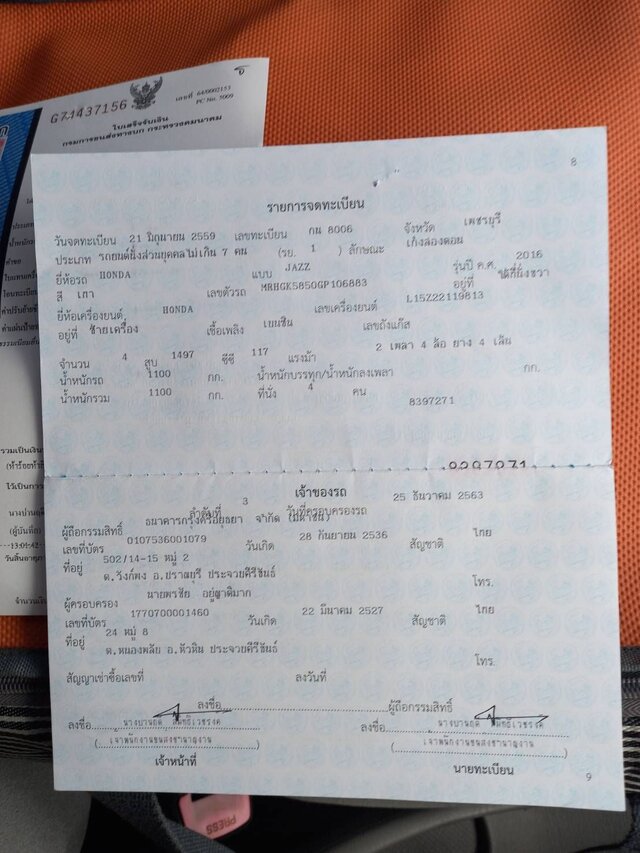 G7A437156
เลขที่ 64/0002153
PC No. 5009
ใบเสร็จรับเงิน
กรมการขนส่งทางบก กระทรวงคมนาคม
8
รายการจดทะเบียน
วันจดทะเบียน 21 มิถุนายน 2559 เลขทะเบียน กน 8006 จังหวัด เพชรบุรี
ประเภท รถยนต์นั่งส่วนบุคคลไม่เกิน 7 คน (รย. 1 ) ลักษณะ เก๋งสองตอน
ยี่ห้อรถ HONDA แบบ JAZZ รุ่นปี ค.ศ. 2016
สี เทา เลขตัวรถ MRHGK5850GP106883 อยู่ที่
ยี่ห้อเครื่องยนต์ HONDA เลขเครื่องยนต์ L15Z22119813
อยู่ที่ ซ้ายเครื่อง เชื้อเพลิง เบนซิน เลขถังแก๊ส
จำนวน 4 สูบ 1497 ซีซี 117 แรงม้า 2 เพลา 4 ล้อ ยาง 4 เส้น
น้ำหนักรถ 1100 กก. น้ำหนักบรรทุก/น้ำหนักลงเพลา กก.
น้ำหนักรวม 1100 กก. ที่นั่ง 4 คน
8397271
เจ้าของรถ
ลำดับที่ 3 วันที่ครอบครองรถ 25 ธันวาคม 2563
ผู้ถือกรรมสิทธิ์ ธนาคารกรุงศรีอยุธยา จำกัด (มหาชน)
เลขที่บัตร 0107536001079 วันเกิด 28 กันยายน 2536 สัญชาติ ไทย
ที่อยู่ 502/14-15 หมู่ 2
ต.วังก์พง อ.ปราณบุรี ประจวบคีรีขันธ์ โทร.
ผู้ครอบครอง นายพรชัย
เลขที่บัตร 1770700001460 วันเกิด 22 มีนาคม 2527 สัญชาติ ไทย
ที่อยู่ 24 หมู่ 8
ต.หนองพลับ อ.หัวหิน ประจวบคีรีขันธ์ โทร.
สัญญาเช่าซื้อเลขที่ ลงวันที่
ลงชื่อ ผู้ถือกรรมสิทธิ์
ลงชื่อ ลงชื่อ
(เจ้าพนักงานขนส่งชำนาญงาน) (เจ้าพนักงานขนส่งชำนาญงาน)
เจ้าหน้าที่ นายทะเบียน
9
PRESS